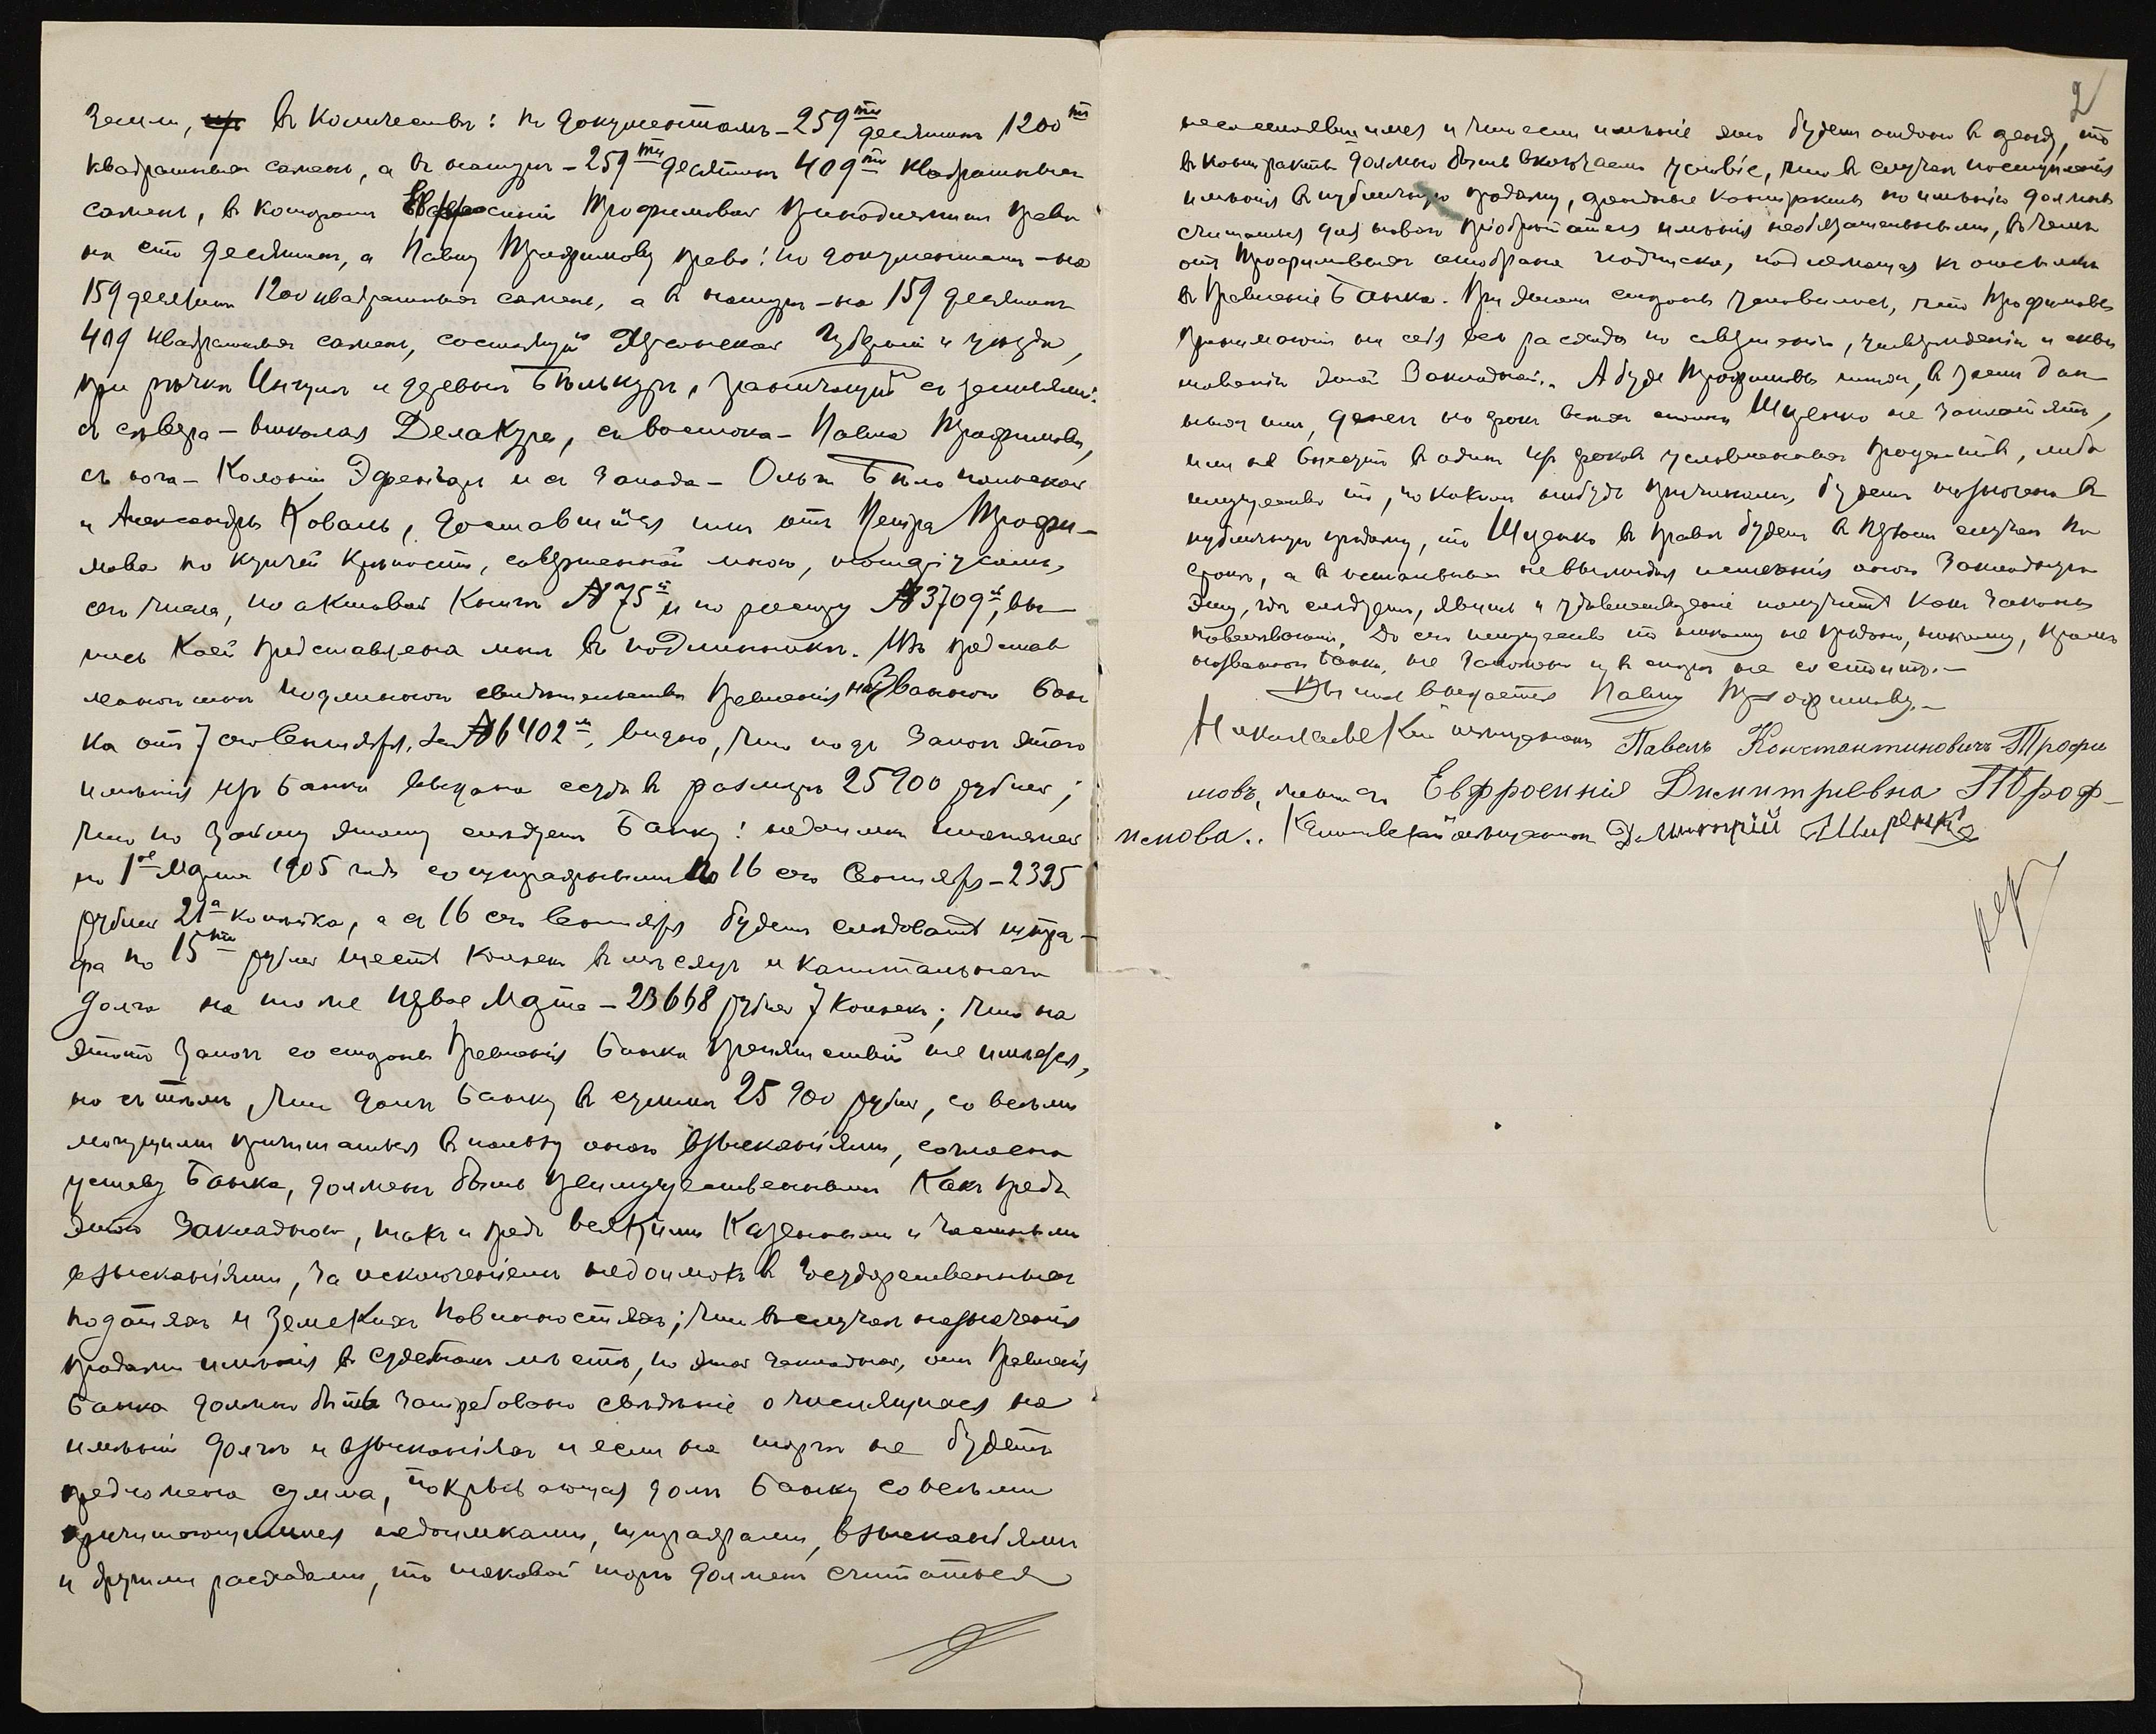 земли, въ количествѣ: по документамъ – 259ти десятинъ 1200тъ
квадратныхъ сажень, а въ натурѣ – 259ти десятинъ 409ти квадратныхъ
сажень, въ которомъ Евфросиніи Трофимовой принадлежитъ право
на сто десятинъ, а Павлу Трофимову право: по документамъ – на
159 десятинъ 1200 квадратныхъ сажень, а въ натурѣ – на 159 десятинъ
409 квадратныхъ сажень, состоящую Херсонской губерніи и уѣзда,
при рѣчкѣ Ингулѣ и деревнѣ граничащую съ землями:
съ сѣвера – Николая Делакура, съ востока – Павла Трофимова,
съ юга – Колоніи Эфенгаръ и съ запада – Ольги
и Александра Коваль, доставшуюся имъ отъ Петра Трофи-
мова по купчей крѣпости, совершенной мною, Нотаріусомъ,
сего числа, по актовой книгѣ № 75й и по реестру № 3709й, вы-
пись коей представлена мнѣ въ подлинникѣ. Изъ представ
леннаго мнѣ подлиннаго свидѣтельства Правленія названнаго Бан
ка отъ 7 сего Сентября, за № 6402м, видно, что подъ залогъ этого
имѣнія изъ Банка выдана ссуда въ размѣрѣ 25900 рублей;
что по займу этому слѣдуетъ Банку: недоимки
по 1ое Марта 1905 года со штрафными по 16 сего Сентября – 2395
рублей 21а копѣйка, а съ 16 сего Сентября будетъ слѣдовать штра-
фа по 15ти рублей шесть копѣекъ въ мѣсяцъ и капитальнаго
долга на то же первое Марта – 23668 рублей 7 копѣекъ; что на
этотъ залогъ со стороны Правленія Банка препятствій не имѣется,
но съ тѣмъ, что долгъ Банку въ суммѣ 25900 рублей, со всѣми
могущими причитаться въ пользу онаго взысканіями, согласно
уставу Банка, долженъ быть преимущественнымъ какъ предъ
этою закладною, такъ и предъ всякими казенными и частными
взысканіями, за исключеніемъ недоимокъ въ государственныхъ
податяхъ и земскихъ повинностяхъ; что въ случаѣ назначенія
продажи имѣнія въ судебномъ мѣстѣ, по этой закладной, отъ Правленія
Банка должно быть затребовано свѣдѣніе о числящихся на
имѣніи долгѣ и взысканіяхъ и если на торгѣ не будетъ
предложена сумма, покрывающая долгъ Банку со всѣми
причитающимися недоимками, штрафами, взысканіями
и другими расходами, то таковой торгъ долженъ считаться
2
несостоявшимся и что если имѣніе это будетъ отдано въ аренду, то
въ контрактѣ должно быть включаемо условіе, что въ случаѣ поступленія
имѣнія въ публичную продажу, арендные контракты по имѣнію должны
считаться для новаго пріобрѣтателя имѣнія необязательными, въ чемъ
отъ Трофимовыхъ отобрана подписка, подлежащая къ отсылкѣ
въ Правленіе Банка. При этомъ стороны условились, что Трофимовы
принимаютъ на себя всѣ расходы по совершенію, утвержденію и
этой закладной. А буде Трофимовы
имъ, денегъ на срокъ всѣхъ сполна Шиленко не заплатятъ,
или не внесутъ въ одинъ изъ сроковъ условленныхъ процентовъ, либо
имущество то, по какимъ нибудь причинамъ, будетъ назначено въ
публичную продажу, то Шиленко въ правѣ будетъ въ первомъ случаѣ по
срокѣ, а въ остальныхъ не выжидая истеченія онаго закладную
эту, гдѣ слѣдуетъ, явить и удовлетвореніе получить какъ законы
повелѣваютъ. До сего имущество то никому не продано, никому, кромѣ
названнаго Банка, не заложено и въ спорѣ не состоитъ. –
Выпись выдается Павлу Трофимову. –
Николаевскій мѣщанинъ Павелъ Константиновичъ Трофи
мовъ, Евфросинія Дмитріевна Троф-
имова.. мѣщанинъ Дмитрій